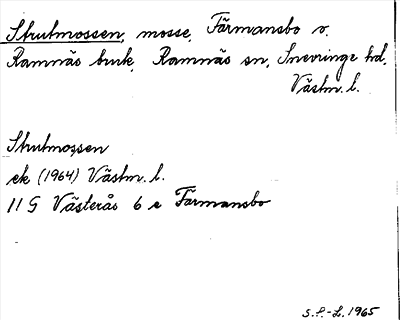 Strutmossen, mosse, Färmansbo o.
Ramnäs bruk, Ramnäs sn, Snevringe hd,
Västm. l.
Strutmossen
ek (1964) Västm. l.
11 G Västerås 6 e Färmansbo
S.P.-L. 1965